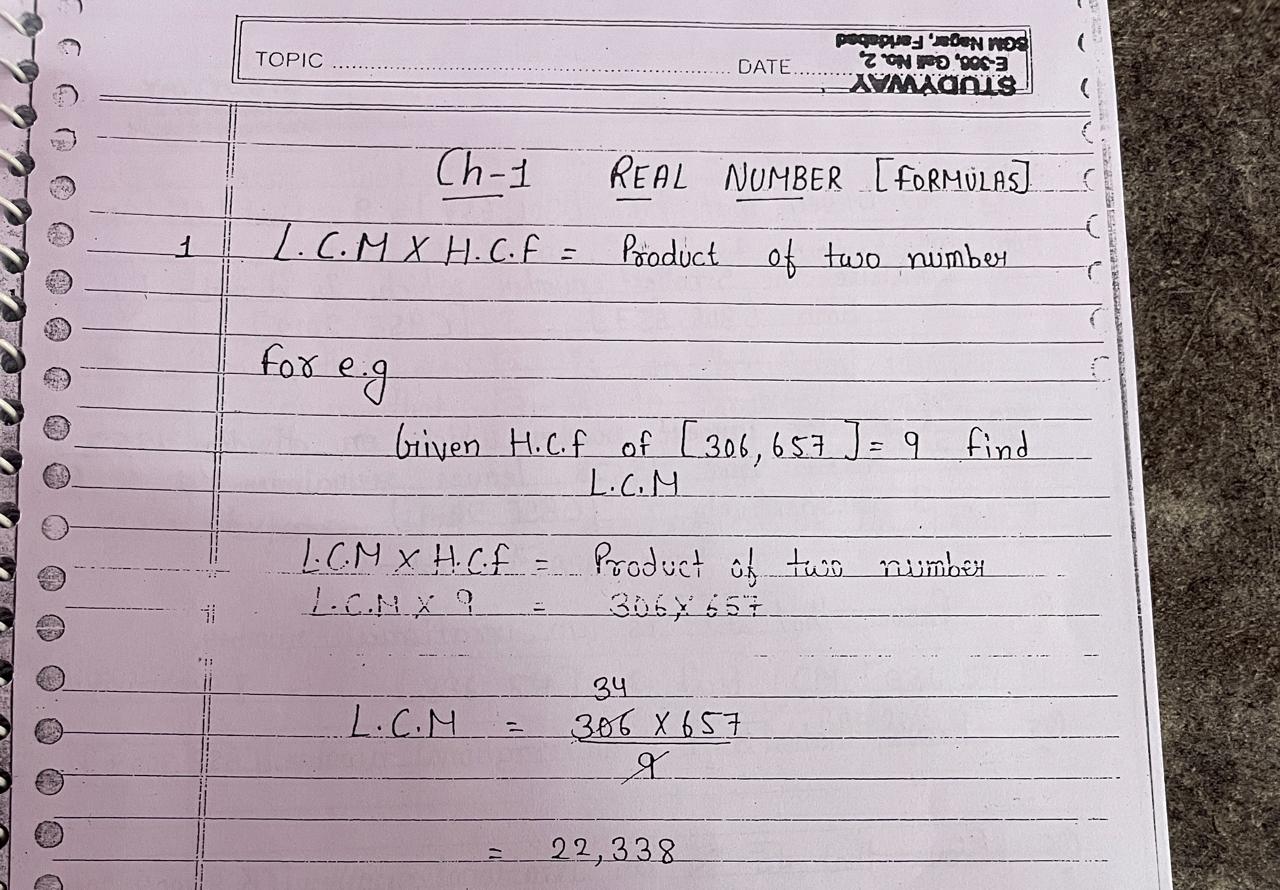 TOPIC ........ DATE........
STUDYWAY
E-306, Gali No. 2,
SGM Nagar, Faridabad
Ch-1 REAL NUMBER [FORMULAS]
1 L.C.M X H.C.F = Product of two number
for e.g
Given H.C.f of [306, 657] = 9 find
L.C.M
L.C.M X H.C.f = Product of two number
L.C.M X 9 = 306 X 657
34
L.C.M = 306 X 657
9
= 22,338